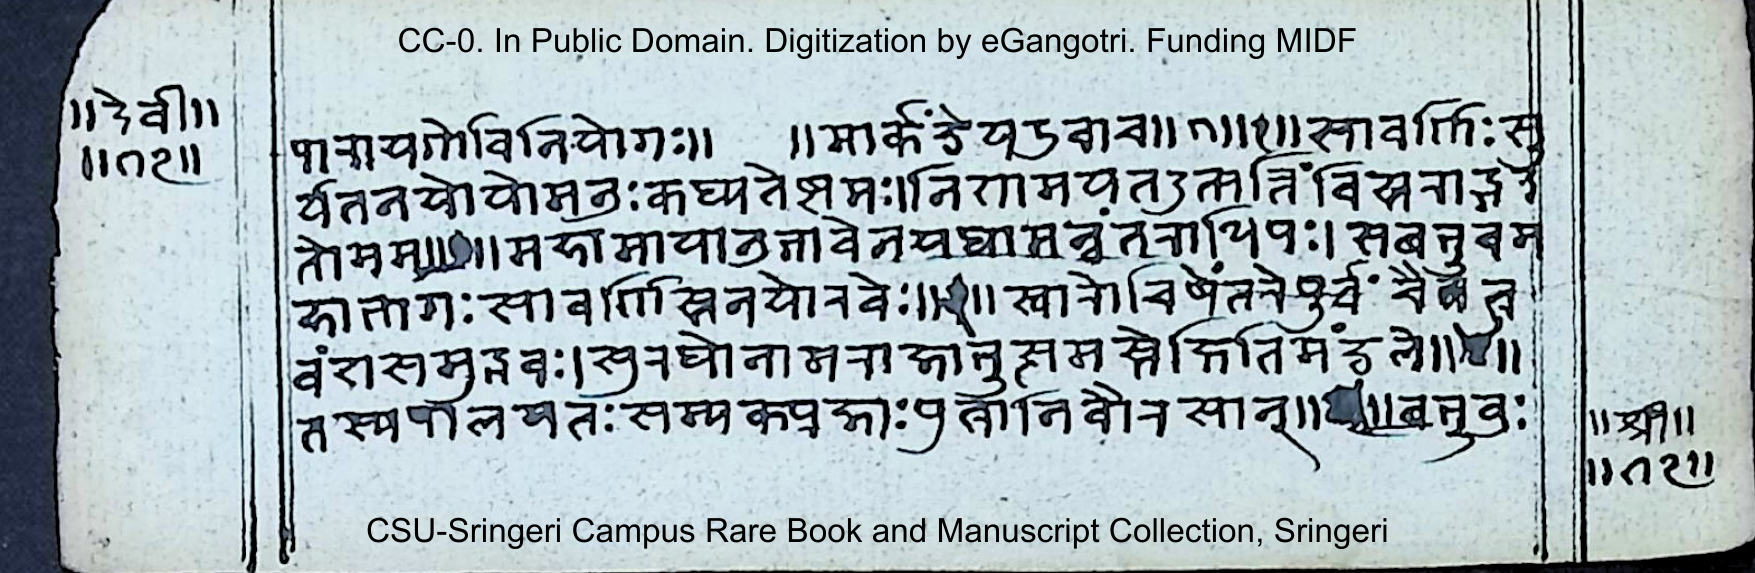 CC-0. In Public Domain. Digitization by eGangotri. Funding MIDF
॥देवी॥
॥१२॥
पारायणेविनियोगः॥ ॥मार्कंडेयउवाच॥ ॥१॥सावर्णिःसू
र्यतनयोयोमनुःकथ्यतेष्टमः।निशामयतउत्पत्तिंविस्तराद्गद
तोमम॥ ॥महामायानुभावेनयथामन्वंतराधिपः।सबभुवम
हाभागःसावर्णिस्तनयोरवेः॥ ॥स्वारोचिषेंतरेपुर्वंचैत्र
वंशसमुद्भवः।सुरथोनामराजाभुत्समस्तेक्षितिमंडले॥ ॥
तस्यपालयतःसम्यकप्रजाःपुत्रानिवौरसान्॥ ॥बभुवुः
॥श्री॥
॥१२॥
CSU-Sringeri Campus Rare Book and Manuscript Collection, Sringeri